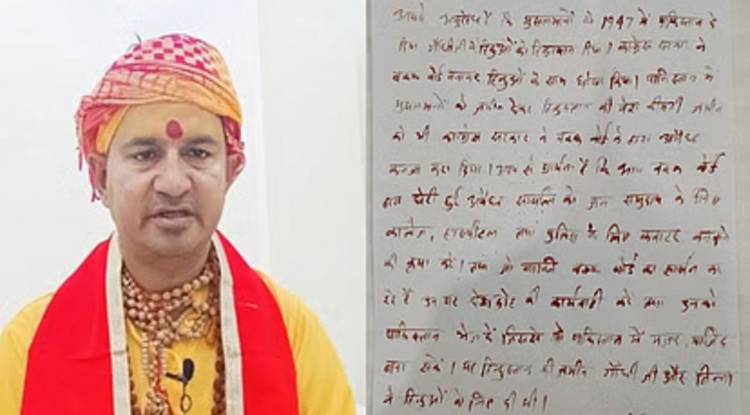 आपको अनुरोध है कि मुसलमानों को 1947 में पाकिस्तान दे
दिया गाँधी जी ने हिन्दुओं को हिन्दुस्तान दिया। कांग्रेस सरकार ने
वक्फ बोर्ड बनाकर हिन्दुओं के साथ धोखा किया। पाकिस्तान में
मुसलमानों को जमीन देकर हिन्दुस्तान की बेश कीमती जमीन
को भी कांग्रेस सरकार ने वक्फ बोर्ड के द्वारा अवैध
कब्जा करा दिया। आप से प्रार्थना है कि आप वक्फ बोर्ड
द्वारा घेरी हुई अवैध सम्पत्ति को जन समुदाय के लिए
कालेज, हास्पीटल तथा पुलिस के लिए क्वाटर बनवाने
की कृपा करें। तथा जो व्यक्ति वक्फ बोर्ड का समर्थन कर
रहे हैं उन पर देशद्रोह की कार्यवाही करें तथा उनको
पाकिस्तान भेज दें जिससे वो पाकिस्तान में मजार, मस्जिद
बना सकें। यह हिन्दुस्तान की जमीन गाँधी जी और जिन्ना
ने हिन्दुओं के लिए दी थी।